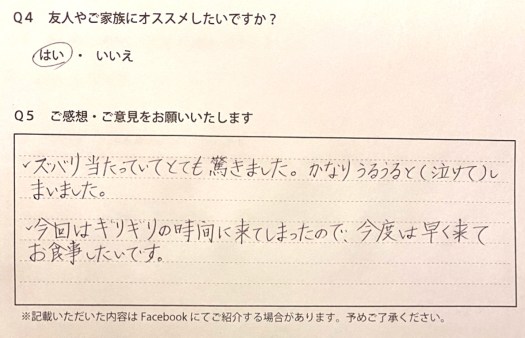 Q4 友人やご家族にオススメしたいですか？
はい ・ いいえ
Q5 ご感想・ご意見をお願いいたします
✓ズバリ当たっていてとても驚きました。かなりうるうると(泣けて)し
まいました。
✓今回はギリギリの時間に来てしまったので、今度は早く来て
お食事したいです。
※記載いただいた内容は Facebook にてご紹介する場合があります。予めご了承ください。